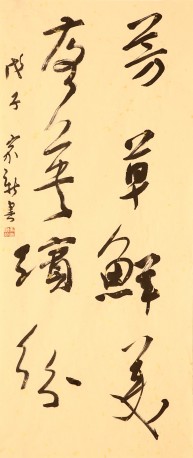 芳草鮮美
落英繽紛
戊子 家新書